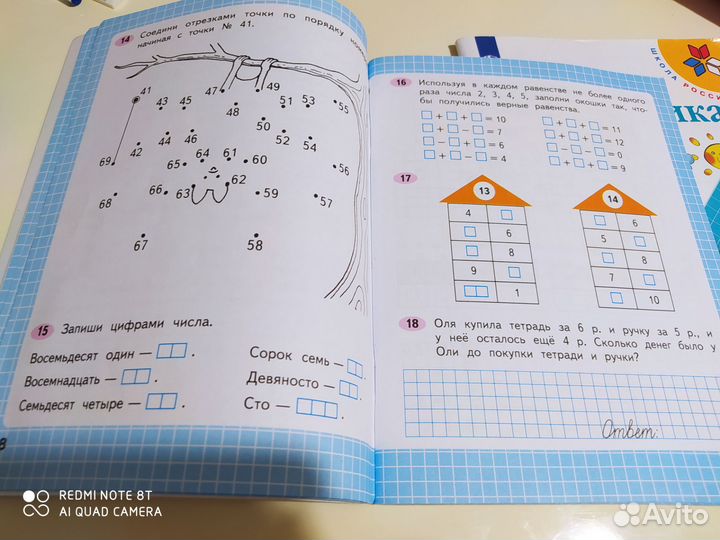 14 Соедини отрезками точки по порядку
начиная с точки № 41.
41
43
45
47
49
51
53
55
48
50
52
54
42
44
46
69
65
64
61
60
56
68
66
63
62
59
57
67
58
15 Запиши цифрами числа.
Восемьдесят один — .
Восемнадцать — .
Семьдесят четыре — .
Сорок семь — .
Девяносто — .
Сто — .
8
16 Используя в каждом равенстве не более одного
раза числа 2, 3, 4, 5, заполни окошки так, что-
бы получились верные равенства.
□ + □ + □ = 10
□ + □ − □ = 7
□ − □ + □ = 6
□ + □ − □ = 4
□ + □ − □ = 11
□ + □ + □ = 12
□ − □ − □ = 0
□ + □ + □ = 9
17
13
4 □
□ 6
□ 8
9 □
□□ 1
14
□ 6
5 □
□ 8
7 □
□ 10
18 Оля купила тетрадь за 6 р. и ручку за 5 р., и
у неё осталось ещё 4 р. Сколько денег было у
Оли до покупки тетради и ручки?
Ответ:
ШКОЛА РОССИИ
REDMI NOTE 8T
AI QUAD CAMERA
Avito